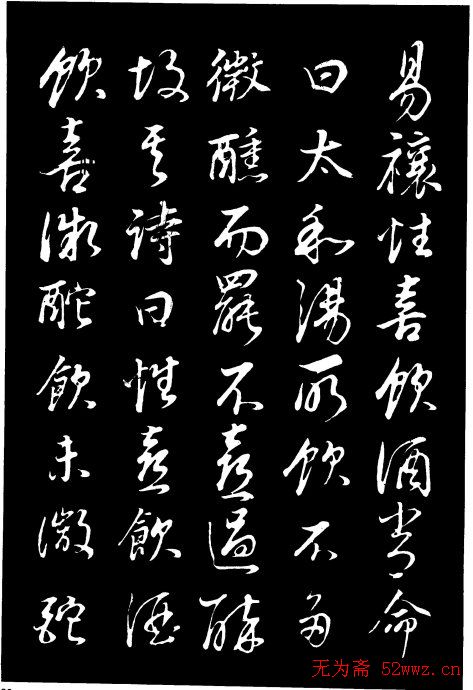 易穰性喜飲酒嘗命
曰太和湯所飲不多
微醺而罷不喜過醉
故其詩曰性喜飲酒
飲喜微酡飲未微酡
无为斋 52wwz.cn